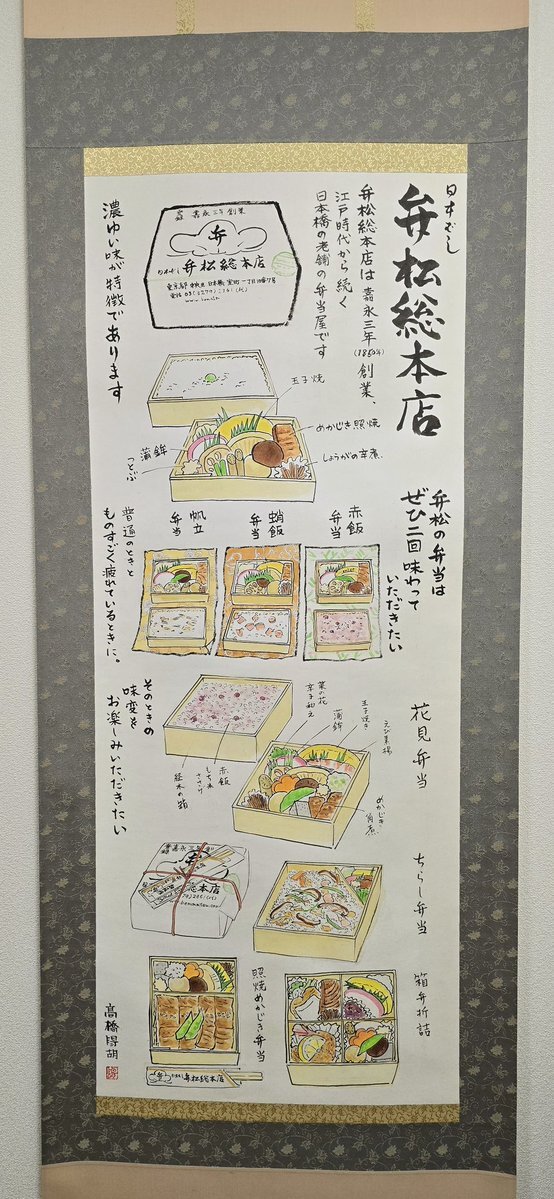 日本ばし
弁松総本店
弁松総本店は嘉永三年(1850年)創業、
江戸時代から続く
日本橋の老舗の弁当屋です
嘉永三年創業
弁
日本ばし 弁松総本店
濃ゆい味が特徴であります
玉子焼
めかじき照焼
しょうがの辛煮
蒲鉾
つとぶ
弁松の弁当は
ぜひ二回味わって
いただきたい
赤飯
弁当
蛸飯
弁当
帆立
弁当
普通のときと
ものすごく疲れているときに。
そのときの
味変を
お楽しみいただきたい
花見弁当
菜の花
辛子和え
蒲鉾
玉子焼き
めかじき
角煮
赤飯
もち米
ささげ
経木の箱
ちらし弁当
嘉永三年創
総本店
箱弁折詰
照焼めかじき弁当
弁松総本店